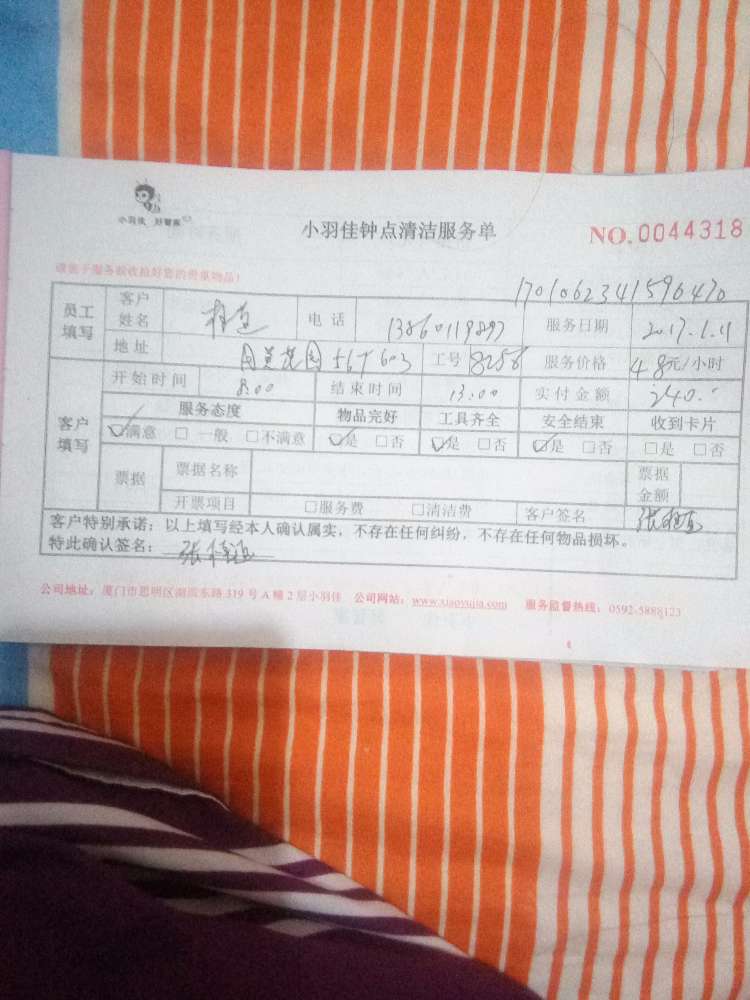 小羽佳 好管家
小羽佳钟点清洁服务单
NO. 0044318
请在于服务前收拾好您的贵重物品！
1701062341596470
员工填写 客户姓名 电话 13860119897 服务日期 2017.1.11
地址 56# 603 工号 8258 服务价格 48元/小时
客户填写 开始时间 8:00 结束时间 13:00 实付金额 240.
服务态度 物品完好 工具齐全 安全结束 收到卡片
☑满意 □一般 □不满意 ☑是 □否 ☑是 □否 ☑是 □否 □是 □否
票据 票据名称 票据金额
开票项目 □服务费 □清洁费 客户签名
客户特别承诺：以上填写经本人确认属实，不存在任何纠纷，不存在任何物品损坏。
特此确认签名：
公司地址：厦门市思明区湖滨东路 319 号 A 幢 2 层小羽佳 公司网站：www.xiaoyujia.com 服务监督热线：0592-5888123